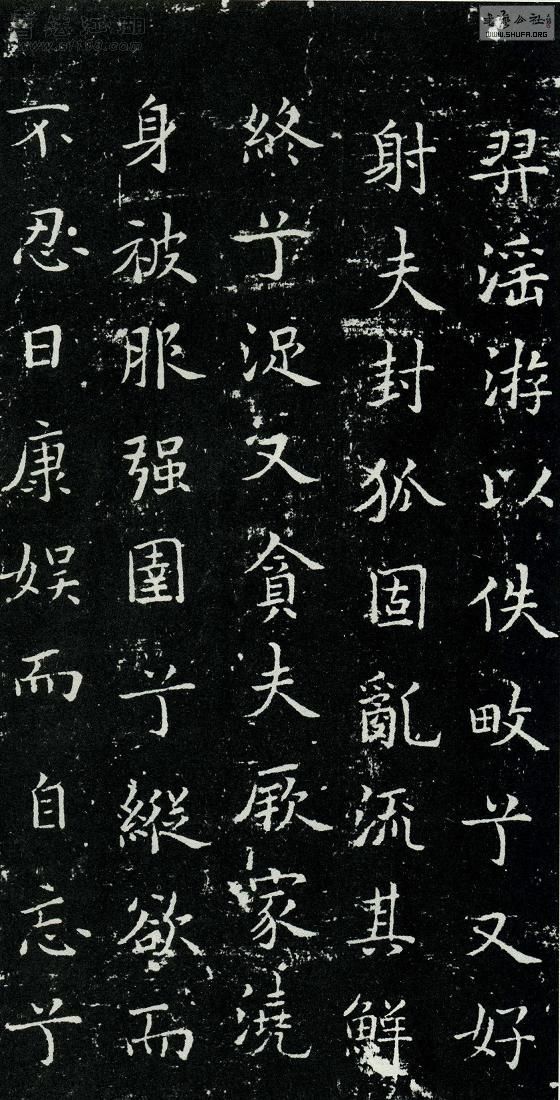 羿滛游以佚畋兮又好
射夫封狐固亂流其鮮
終兮浞又貪夫厥家澆
身被服强圉兮縱欲而
不忍日康娱而自忘兮
書藝公社
WWW.SHUFA.ORG